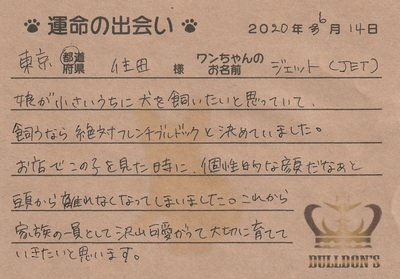 運命の出会い 2020年6月14日
東京 都道府県 住田 様 ワンちゃんのお名前 ジェット(JET)
娘が小さいうちに犬を飼いたいと思っていて、
飼うなら絶対フレンチブルドックと決めていました。
お店でこの子を見た時に、個性的な顔だなあと
頭から離れなくなってしまいました。これから
家族の一員として沢山可愛がって大切に育てて
いきたいと思います。
BULLDON'S